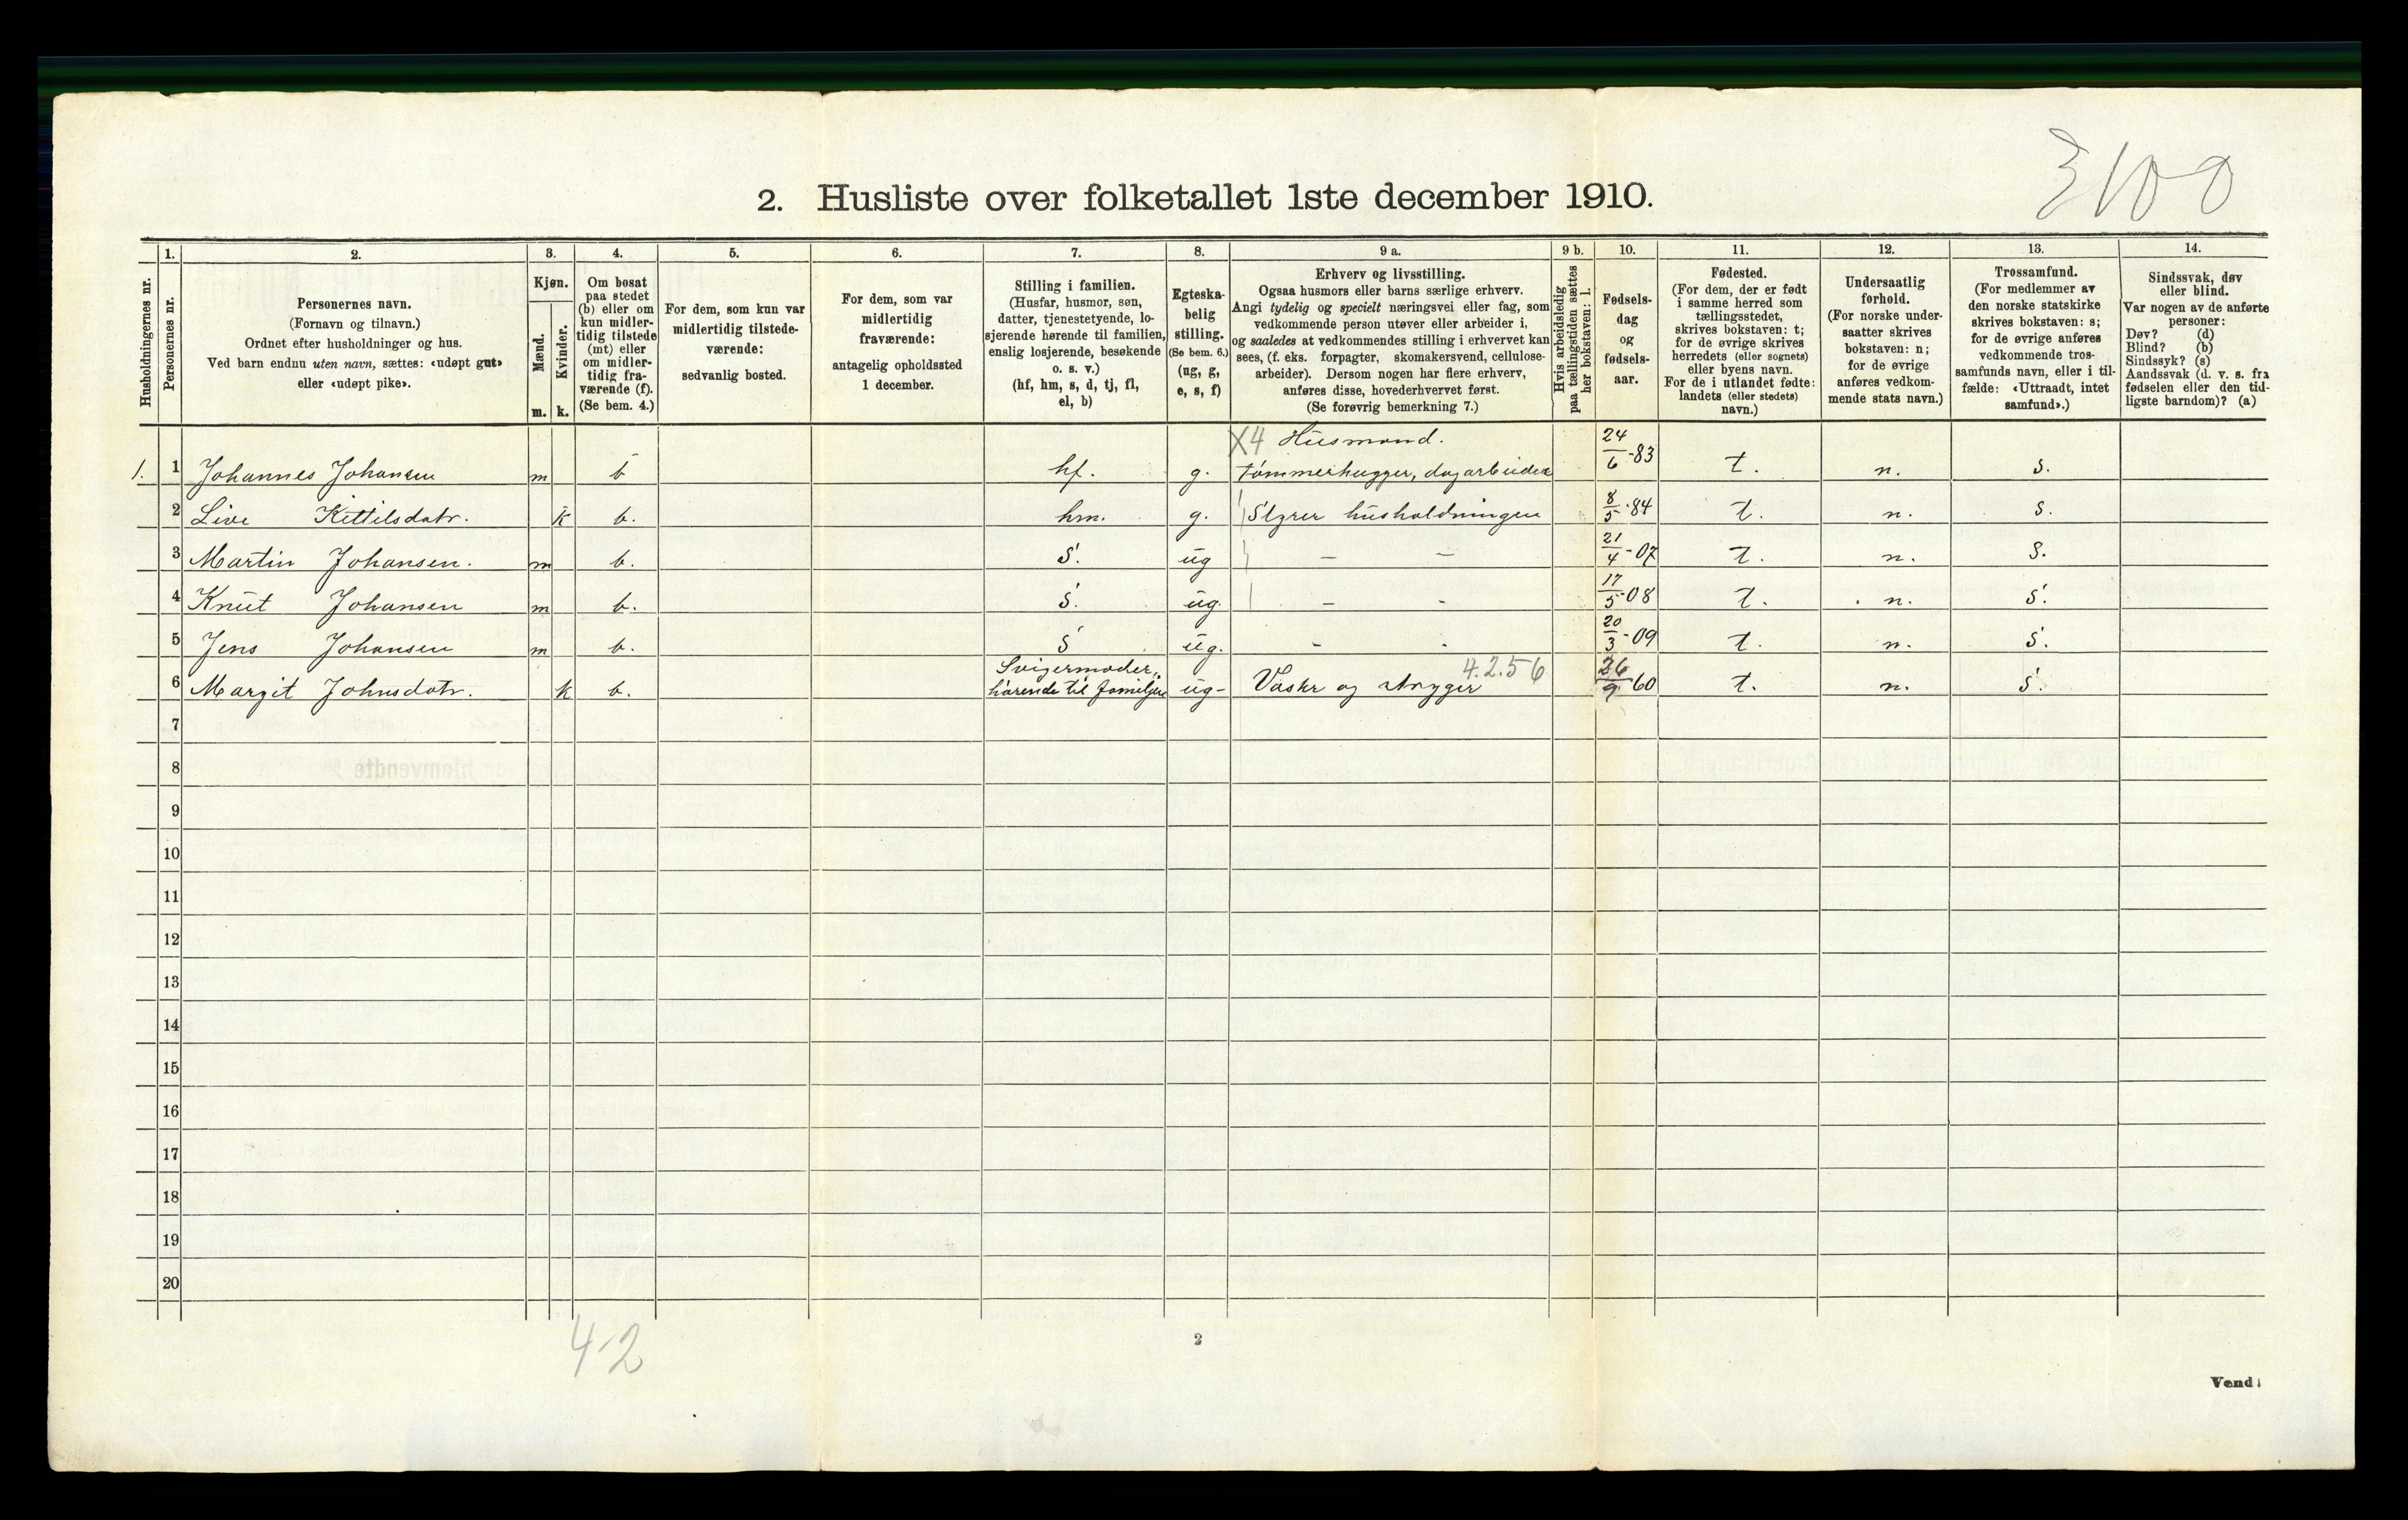 3100
2. Husliste over folketallet 1ste december 1910.
Husholdningernes nr.
1. Personernes nr.
2.
Personernes navn.
(Fornavn og tilnavn.)
Ordnet efter husholdninger og hus.
Ved barn endnu uten navn, sættes: «udøpt gut»
eller «udøpt pike».
3.
Kjøn.
Mænd. m.
Kvinder. k.
4.
Om bosat
paa stedet
(b) eller om
kun midler-
tidig tilstede
(mt) eller
om midler-
tidig fra-
værende (f).
(Se bem. 4.)
5.
For dem, som kun var
midlertidig tilstede-
værende:
sedvanlig bosted.
6.
For dem, som var
midlertidig
fraværende:
antagelig opholdssted
1 december.
7.
Stilling i familien.
(Husfar, husmor, søn,
datter, tjenestetyende, lo-
sjerende hørende til familien,
enslig losjerende, besøkende
o. s. v.)
(hf, hm, s, d, tj, fl,
el, b)
8.
Egteska-
belig
stilling.
(Se bem. 6.)
(ug, g,
e, s, f)
9 a.
Erhverv og livsstilling.
Ogsaa husmors eller barns særlige erhverv.
Angi tydelig og specielt næringsvei eller fag, som
vedkommende person utøver eller arbeider i,
og saaledes at vedkommendes stilling i erhvervet kan
sees, (f. eks. forpagter, skomakersvend, cellulose-
arbeider). Dersom nogen har flere erhverv,
anføres disse, hovederhvervet først.
(Se forøvrig bemerkning 7.)
9 b.
Hvis arbeidsledig
paa tællingstiden sættes
her bokstaven: l.
10.
Fødsels-
dag
og
fødsels-
aar.
11.
Fødested.
(For dem, der er født
i samme herred som
tællingsstedet,
skrives bokstaven: t;
for de øvrige skrives
herredets (eller sognets)
eller byens navn.
For de i utlandet fødte:
landets (eller stedets)
navn.)
12.
Undersaatlig
forhold.
(For norske under-
saatter skrives
bokstaven: n;
for de øvrige
anføres vedkom-
mende stats navn.)
13.
Trossamfund.
(For medlemmer av
den norske statskirke
skrives bokstaven: s;
for de øvrige anføres
vedkommende tros-
samfunds navn, eller i til-
fælde: «Uttraadt, intet
samfund».)
14.
Sindssvak, døv
eller blind.
Var nogen av de anførte
personer:
Døv? (d)
Blind? (b)
Sindssyk? (s)
Aandssvak (d. v. s. fra
fødselen eller den tid-
ligste barndom)? (a)
X4 Husmand.
1. 1 Johannes Johansen m b hf. g. tømmerhugger, dagarbeider 24/6-83 t. n. s.
2 Live Kittilsdatr. k b. hm. g. Styrer husholdningen 8/5-84 t. n. s.
3 Martin Johansen. m b. s. ug - - 21/4-07 t. n. s.
4 Knut Johansen m b. s. ug. - - 17/5-08 t. n. s.
5 Jens Johansen m b. s ug. - - 20/3-09 t. n. s.
Svigermoder, 4.2.56
6 Margit Johnsdatr. k b. hørende til familjen ug- Vaskr og stryger 26/9 60 t. n. s.
7
8
9
10
11
12
13
14
15
16
17
18
19
20
4-2
2
Vend!